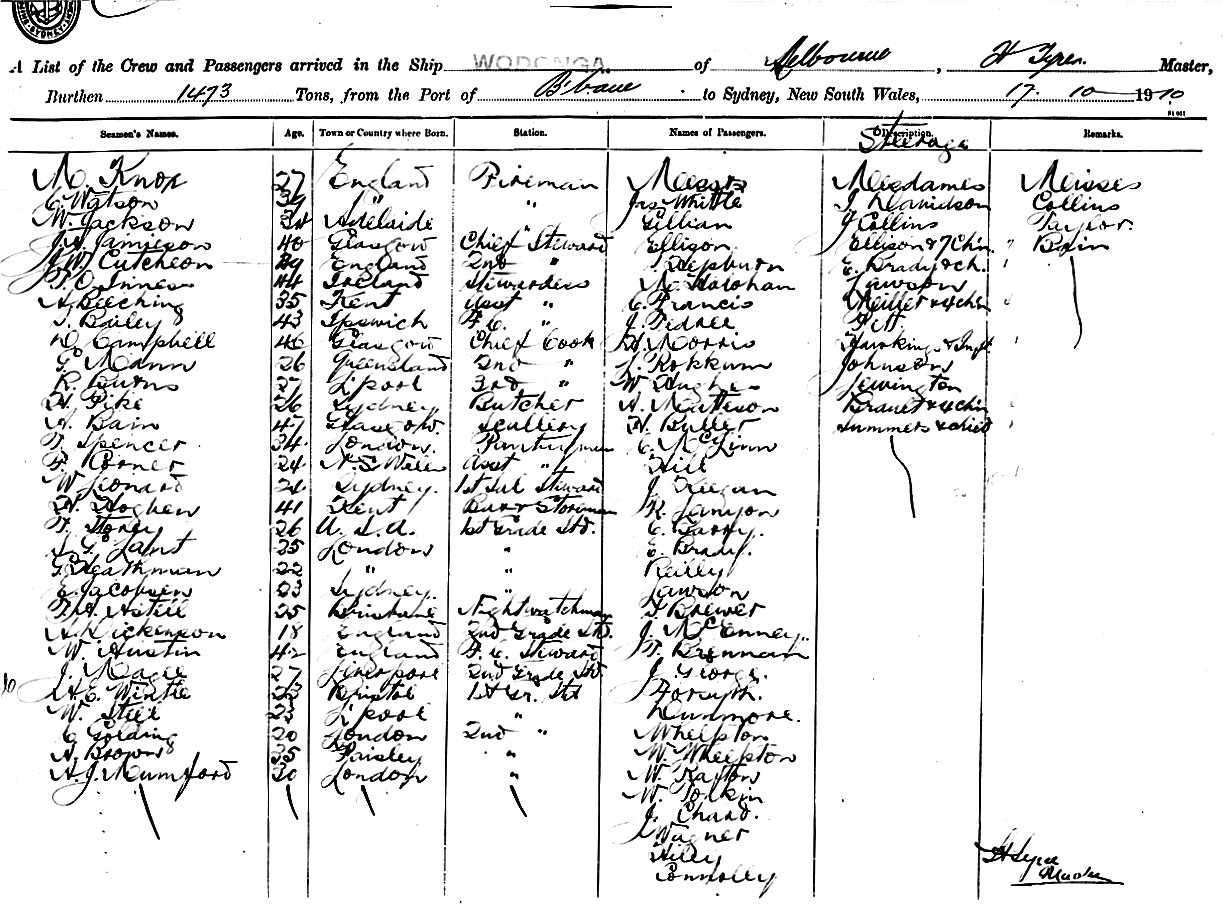 A List of the Crew and Passengers arrived in the Ship WODONGA of Melbourne, Master,
Burthen 1473 Tons, from the Port of B'bane to Sydney, New South Wales, 17. 10 1910
Seamen's Names. Age. Town or Country where Born. Station. Names of Passengers. Description. Remarks.
Steerage
M. Knox 27 England Fireman Messrs Mesdames Misses
C. Watson 39 " " Jas Whittle J. Davidson Collins
W. Jackson 34 Adelaide " Gillian J Collins Taylor
J. A. Jamieson 40 Glasgow Chief Steward Ellison Ellison & 7 Chin " Bain
J. W. Cutcheon 39 England 2nd " Hepburn E. Brady & ch. "
T. C. Inness 44 Ireland Stewardess M. Holohan Lawson
A. Beeching 35 Kent Asst " C. Francis & 4 chin
S. Bailey 43 Ipswich F.C. " J. Pitt
D. Campbell 46 Glasgow Chief Cook Morris Hawkings &
G. Mann 26 Queensland 2nd " Rokkum Johnson
R. Burns 27 L'pool 3rd " W. Hughes Lewington
H. Pike 26 Sydney Butcher A. Matteson & 4 chin
A. Bain 47 Glasgow Scullery H. Butler Summers & child
T. Spencer 34 London. Pantryman C. McGinn
F. Corner 24 N. S. Wales Asst " Hill
W. Leonard 21 Sydney. 1st Sal Steward J. Keegan
H. Hogben 41 Kent Bar & Storeman R. Lanyon
T. Storey 26 U. S. A. 1st Grade Std. C. Barry.
S. G. 25 London " E. Brady.
G. Heathman 22 " " Reilly
E. Jacobsen 23 Sydney. " Lawson
Astill 25 Brisbane Nightwatchman Brewer
A. Dickenson 18 England 2nd Grade Std. J. McEnney.
W. Austin 42 England F. C. Steward T. Brennan
J. Magee 27 Liverpool 2nd Grade Std. J. George.
H. E. Wintle 23 Bristol 1st Gr. Std Forsyth.
W. Steel 23 L'pool " Dunmore.
C. Golding 20 London 2nd " Whelpton
A. Brown 35 Paisley " W. Whelpton
A. J. Mumford 30 London " W. Kayton
W. Tolkin
J. Chard.
Wagner
Hiley
Connolly
Master